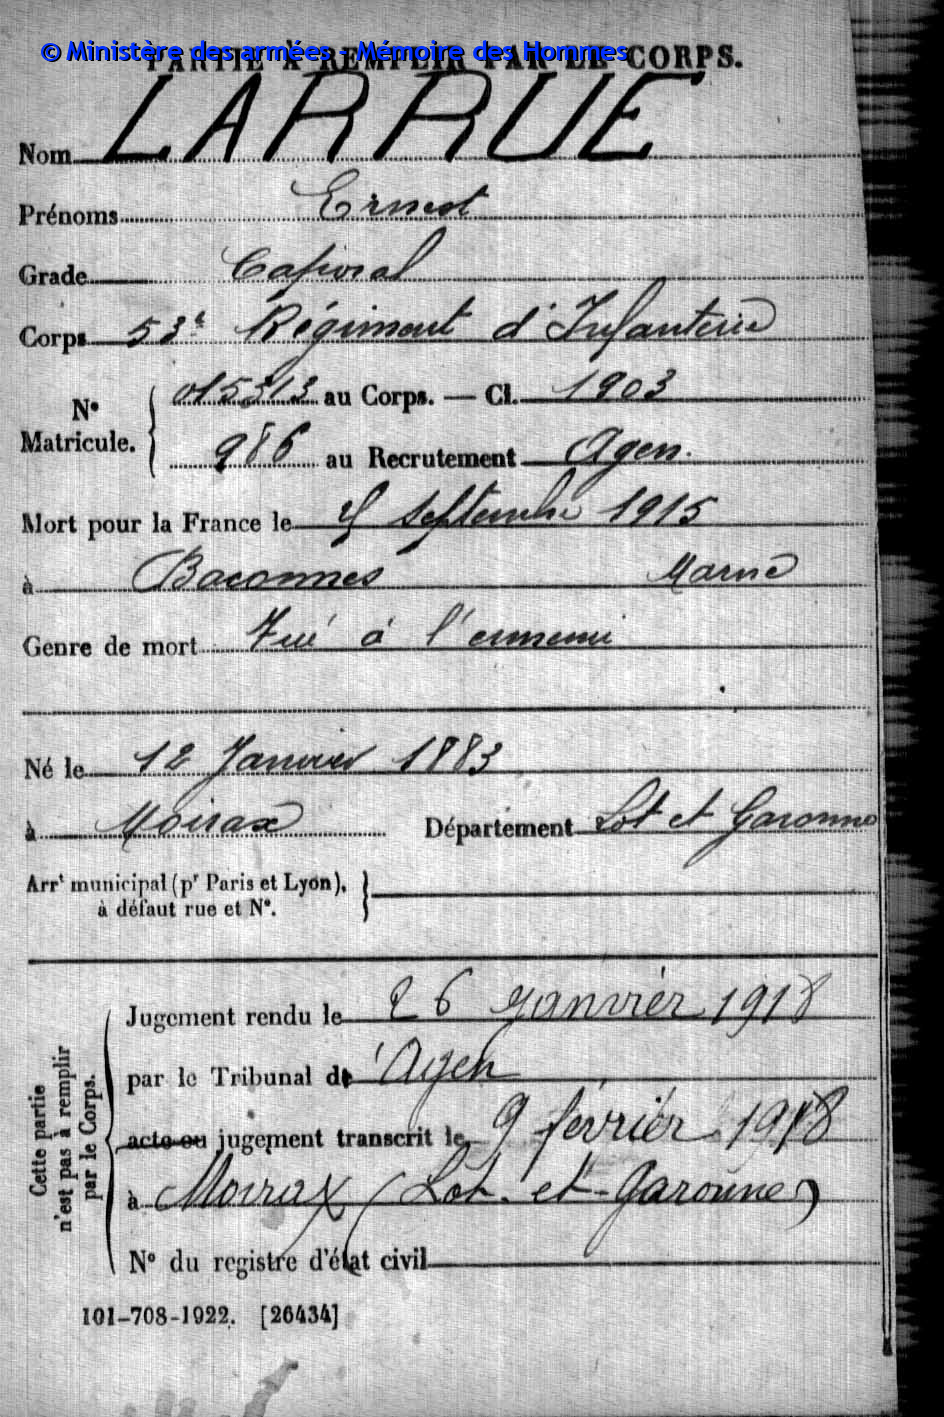 © Ministère des armées - Mémoire des Hommes
PARTIE À REMPLIR PAR LE CORPS.
Nom LARRUE
Prénoms Ernest
Grade Caporal
Corps 53e Régiment d'Infanterie
N° Matricule. 015313 au Corps. — Cl. 1903
986 au Recrutement Agen.
Mort pour la France le septembre 1915
à Baconnes Marne
Genre de mort Tué à l'ennemi
Né le 12 Janvier 1883
à Moirax Département Lot et Garonne
Arrt municipal (pr Paris et Lyon),
à défaut rue et N°.
Cette partie n'est pas à remplir par le Corps.
Jugement rendu le 26 janvier 1918
par le Tribunal de Agen
acte ou jugement transcrit le 9 février 1918
à Moirax (Lot-et-Garonne)
N° du registre d'état civil
101-708-1922. [26434]